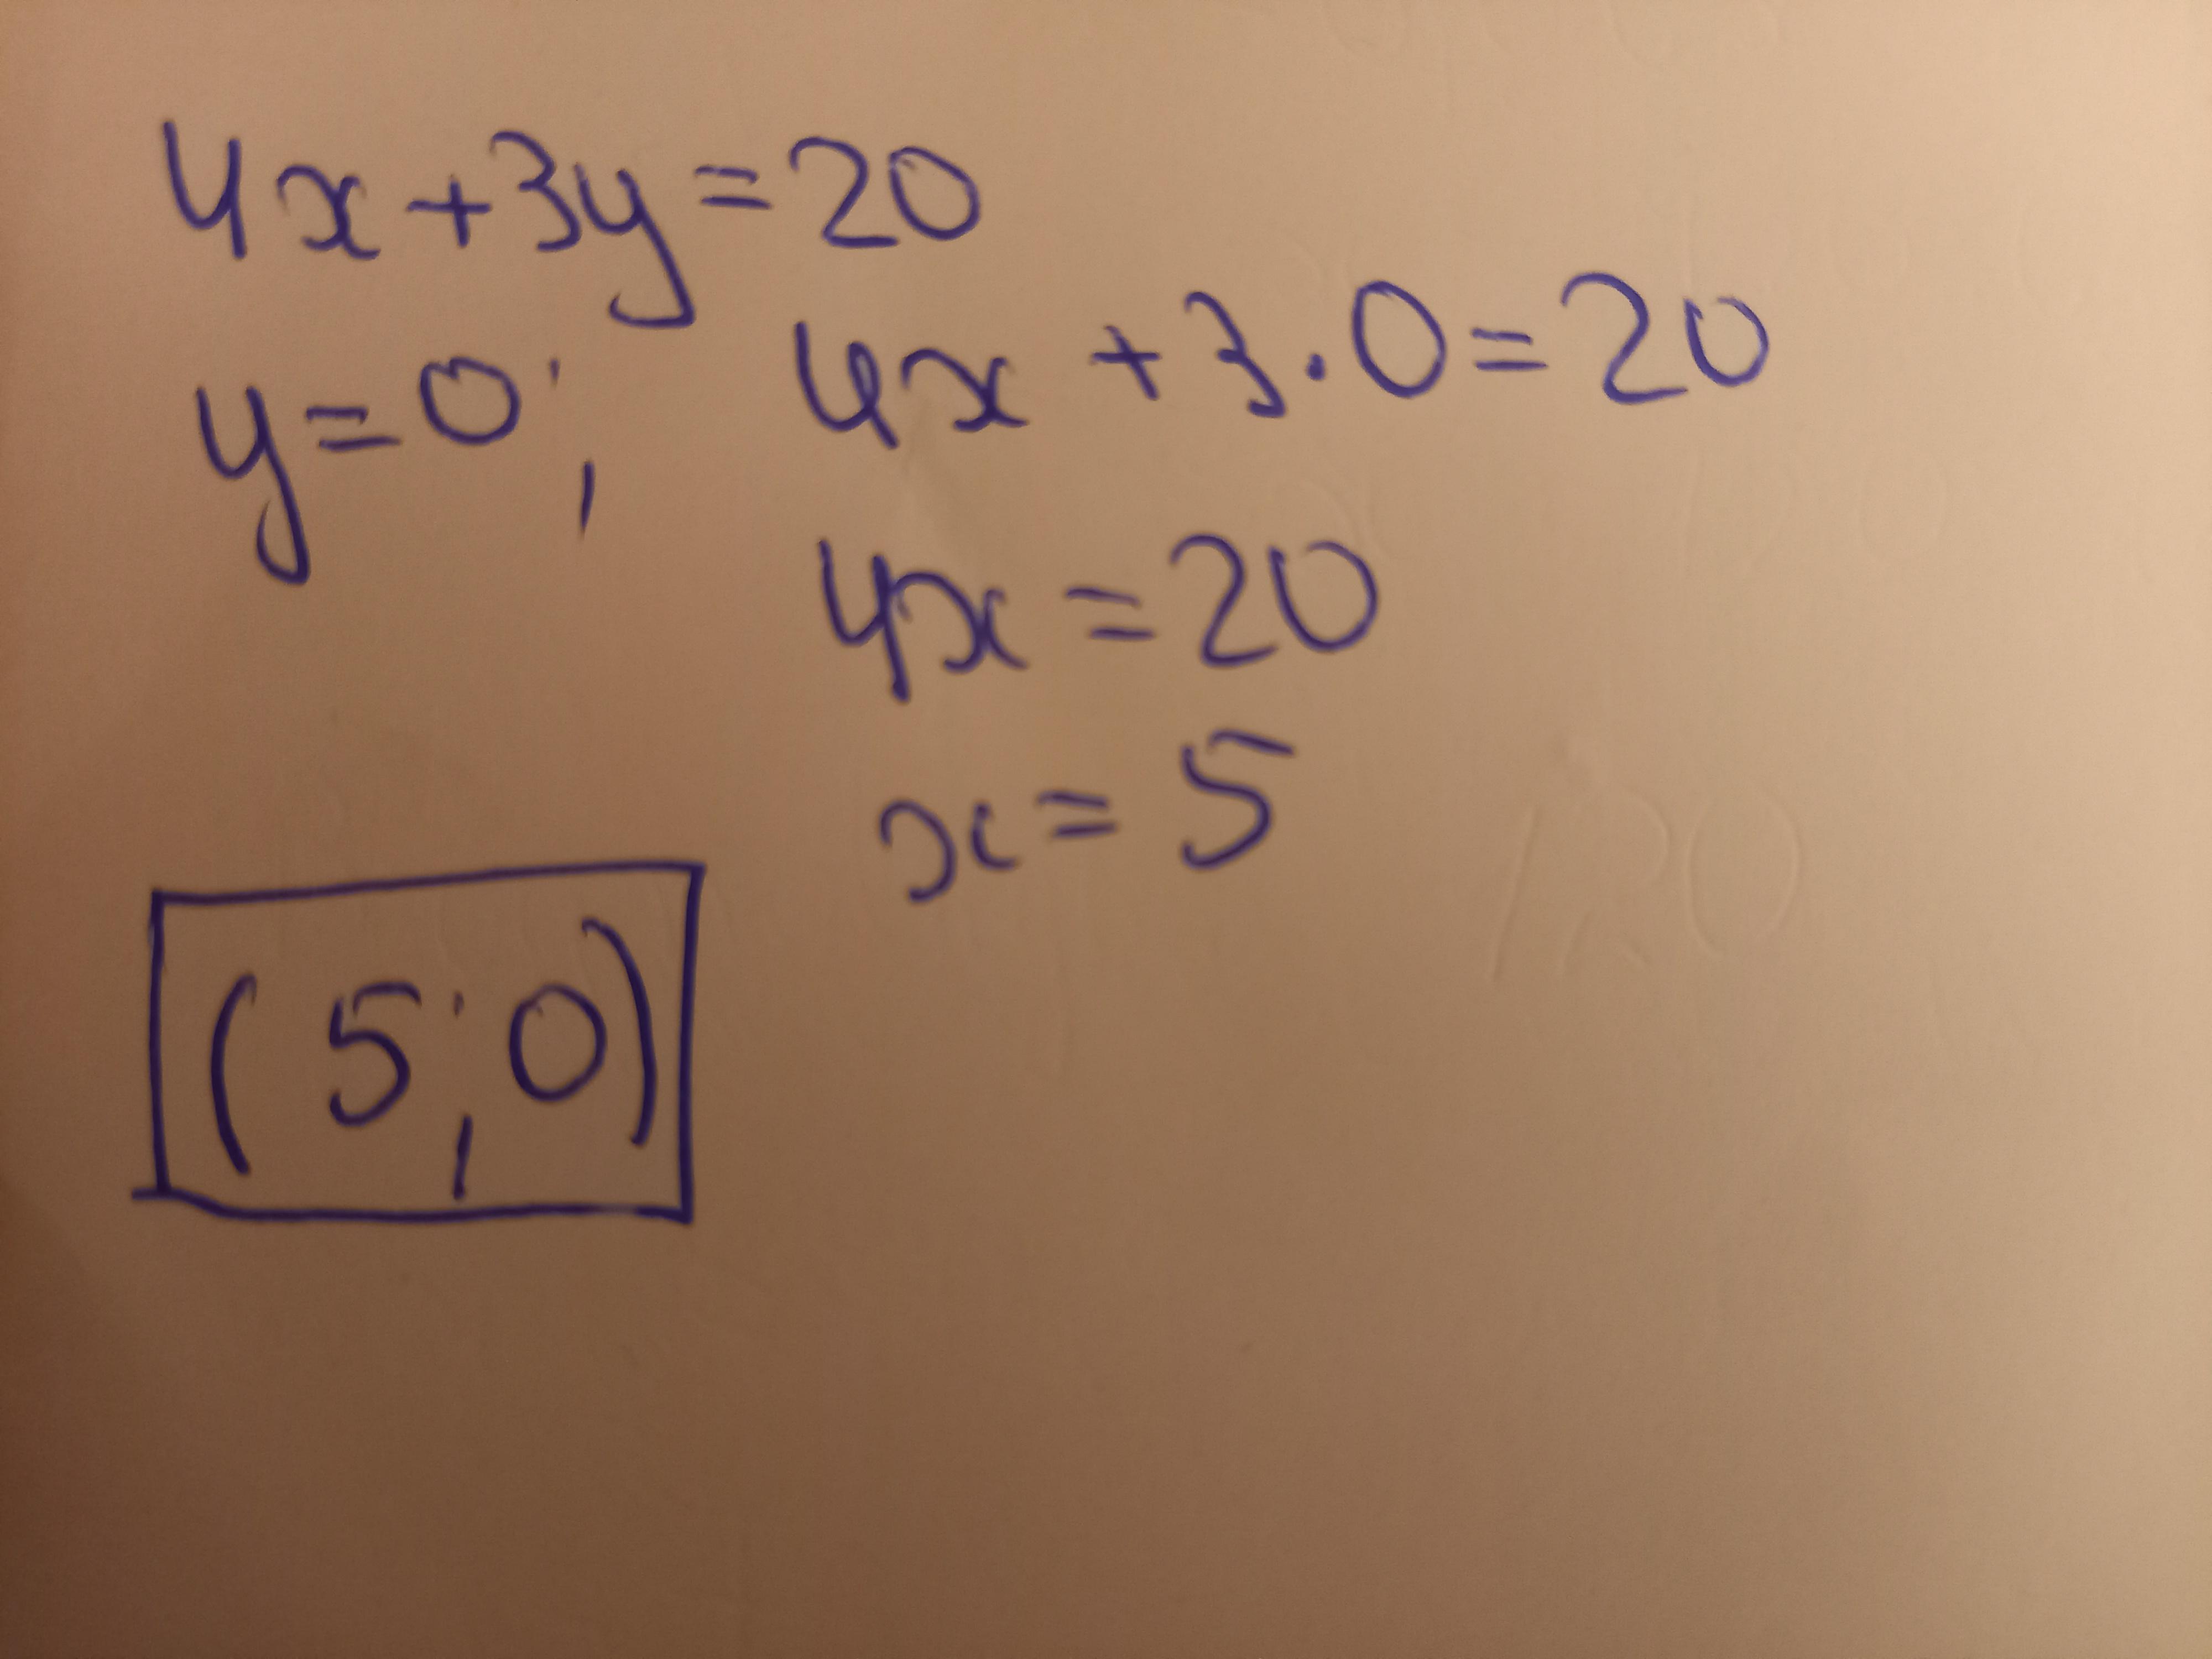 4x+3y=20
y=0; 4x+3·0=20
4x=20
x=5
(5;0)